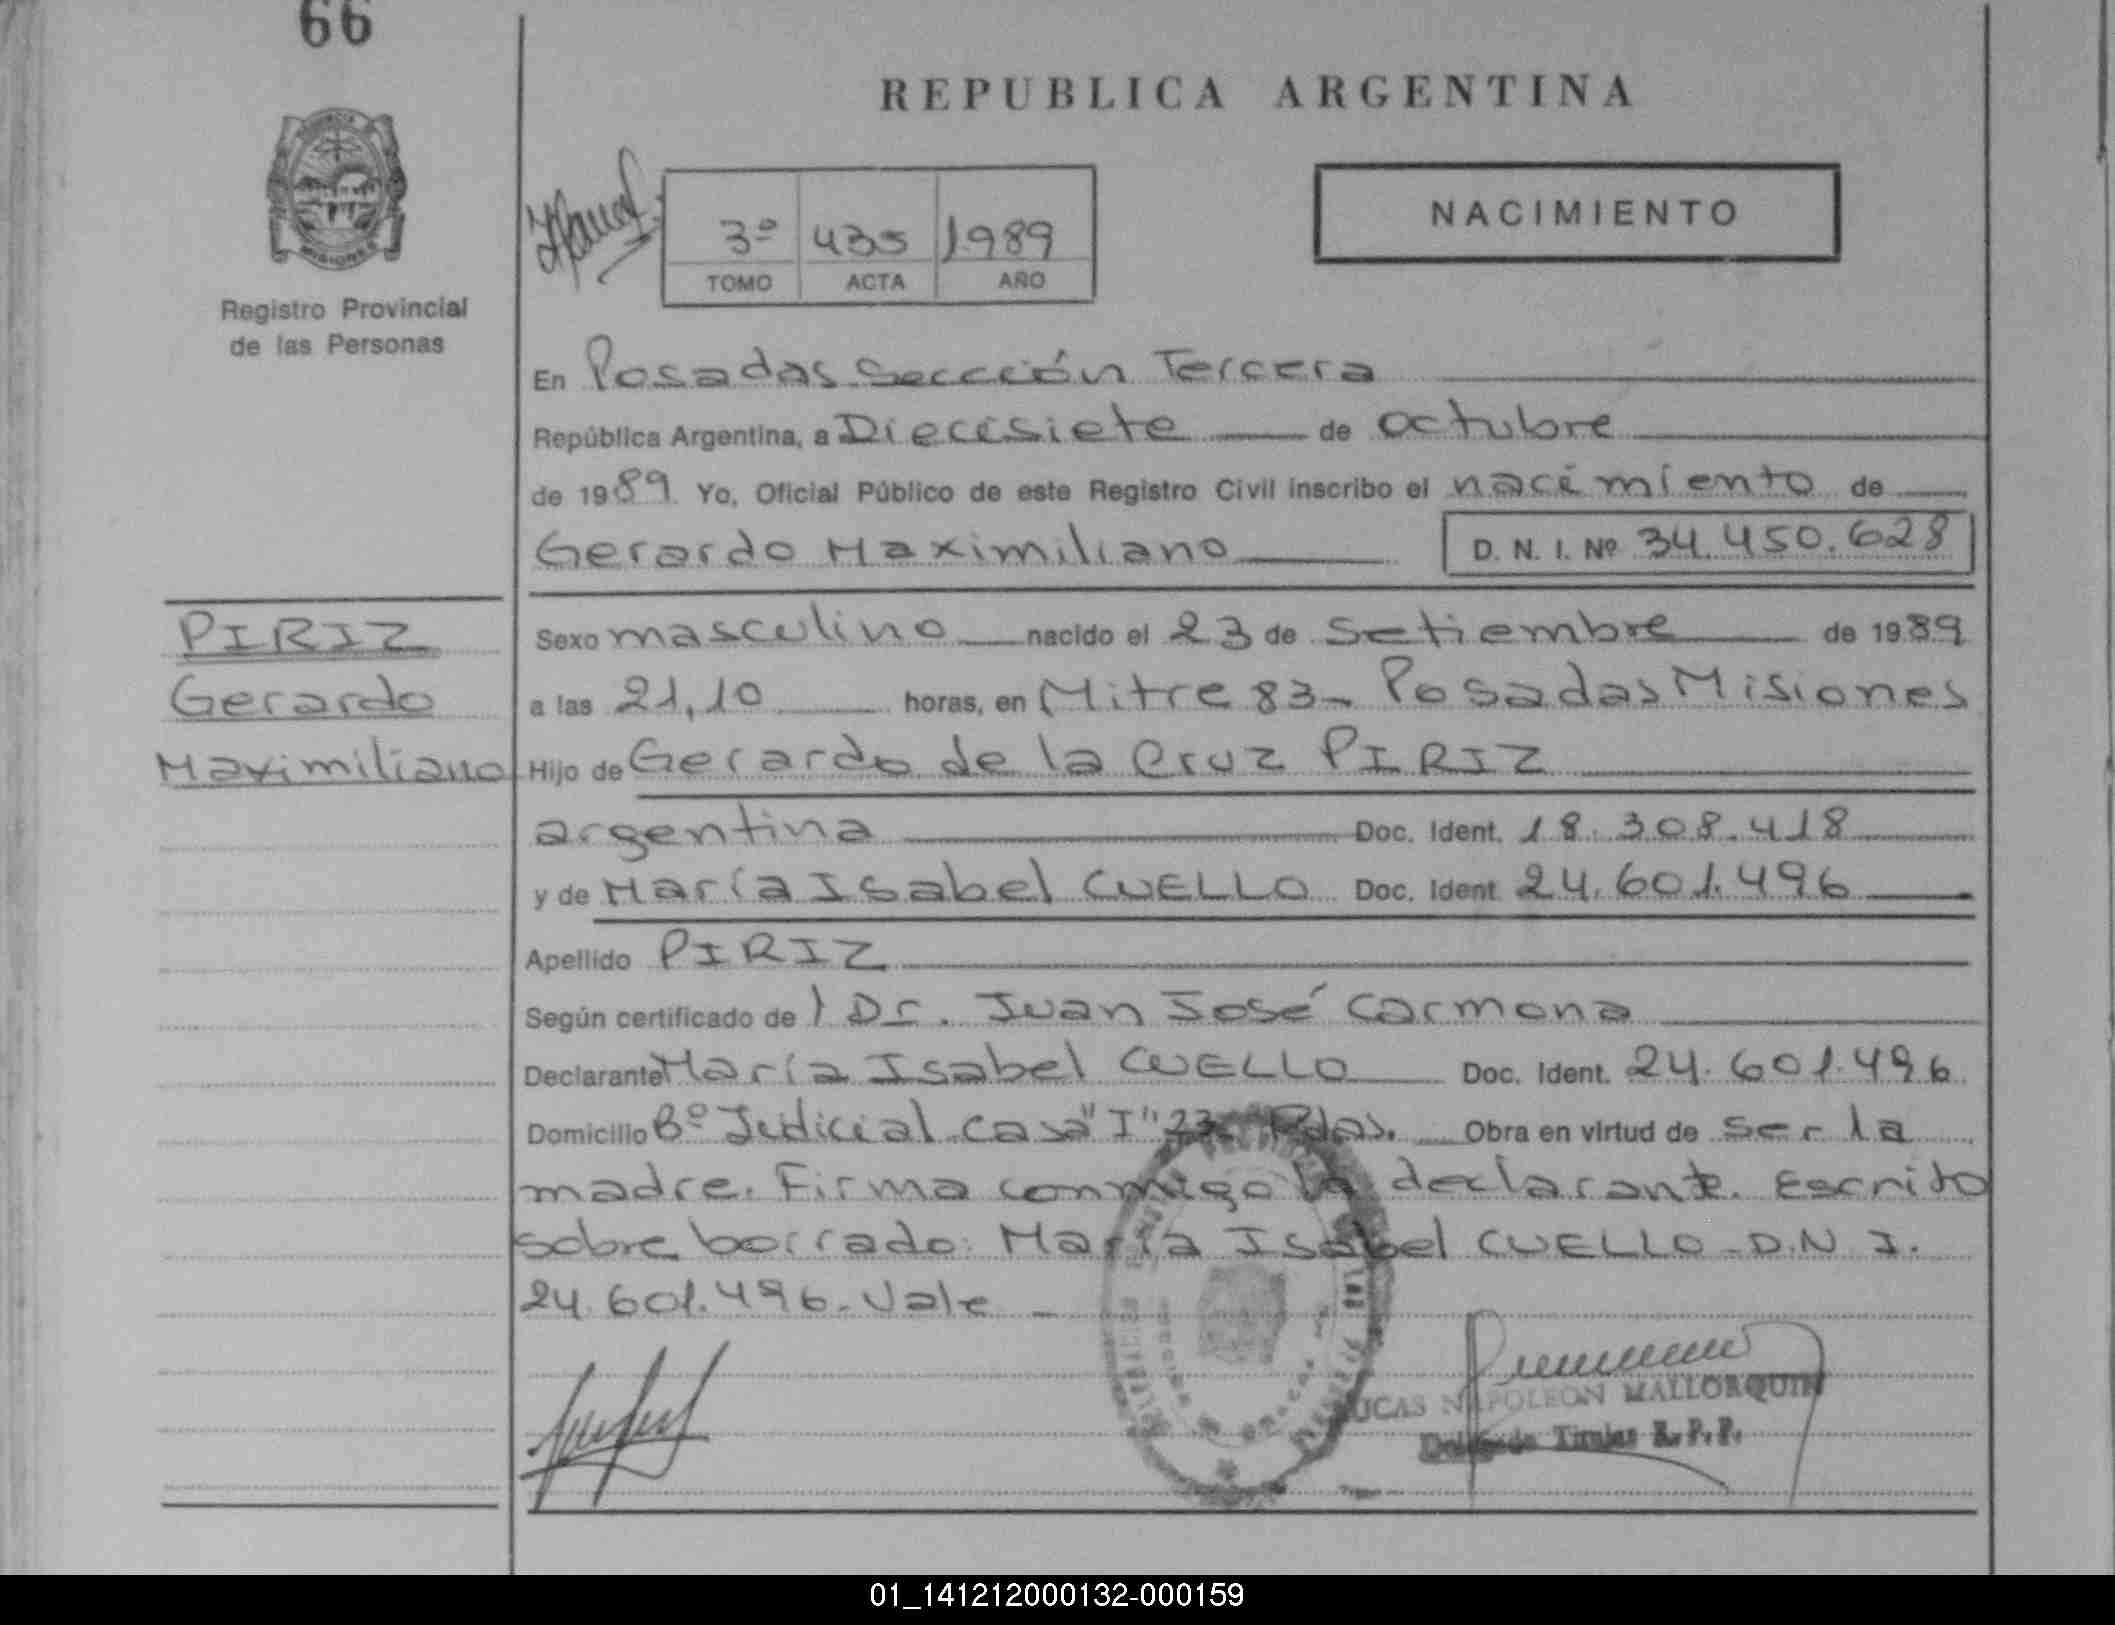 66
REPUBLICA ARGENTINA
MISIONES
Registro Provincial
de las Personas
3º 435 1989
TOMO ACTA AÑO
NACIMIENTO
En Posadas Sección Tercera
República Argentina, a Diecisiete de octubre
de 1989 Yo, Oficial Público de este Registro Civil inscribo el nacimiento de
Gerardo Maximiliano D. N. I. Nº 34.450.628
PIRIZ
Gerardo
Maximiliano
Sexo masculino nacido el 23 de Setiembre de 1989
a las 21,10 horas, en Mitre 83- Posadas Misiones
Hijo de Gerardo de la Cruz PIRIZ
argentina Doc. Ident. 18.308.418
y de María Isabel CUELLO Doc. Ident 24.601.496
Apellido PIRIZ
Según certificado de l Dr. Juan José Carmona
Declarante María Isabel CUELLO Doc. Ident. 24.601.496
Domicilio Bº Judicial casa "I" 23 Pdas. Obra en virtud de ser la
madre. Firma conmigo la declarante. Escrito
sobre borrado: María Isabel CUELLO D.N I.
24.601.496. Vale -
LUCAS NAPOLEON MALLORQUIN
Titular R.P.P.
01_141212000132-000159